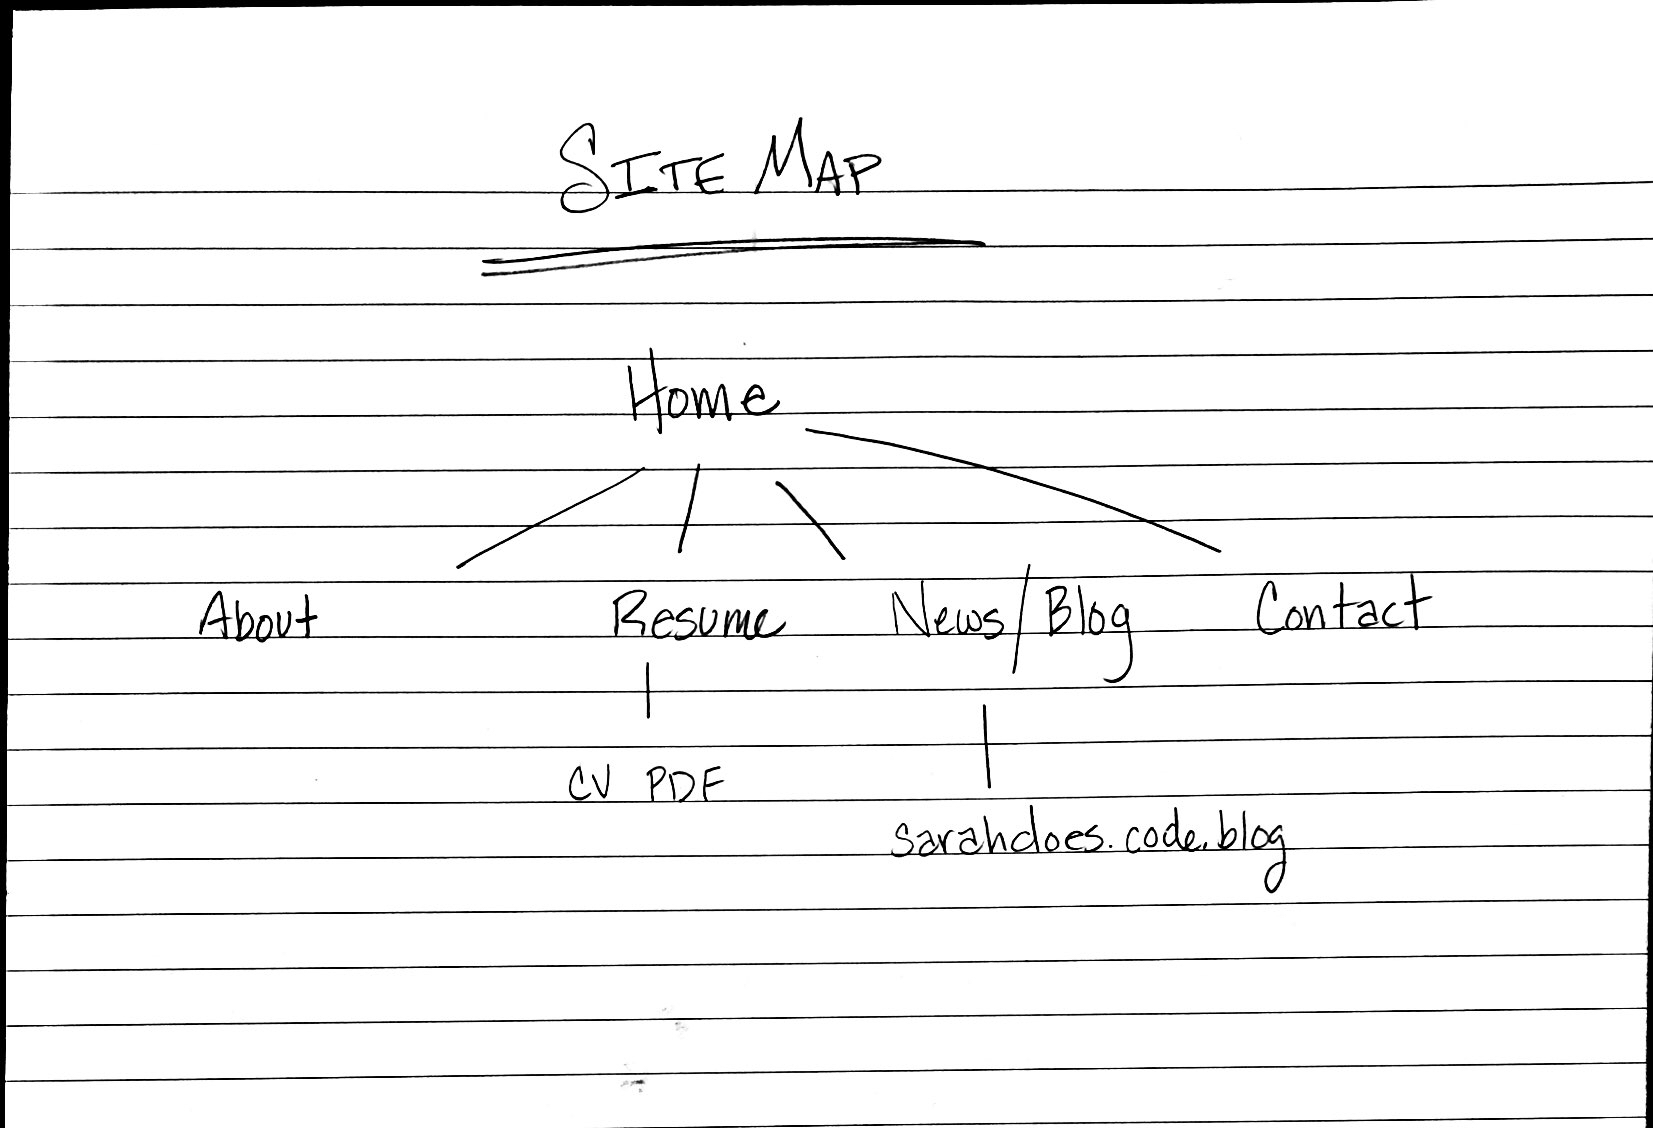 SITE MAP
Home
About Resume News/Blog Contact
CV PDF
sarahdoes.code.blog